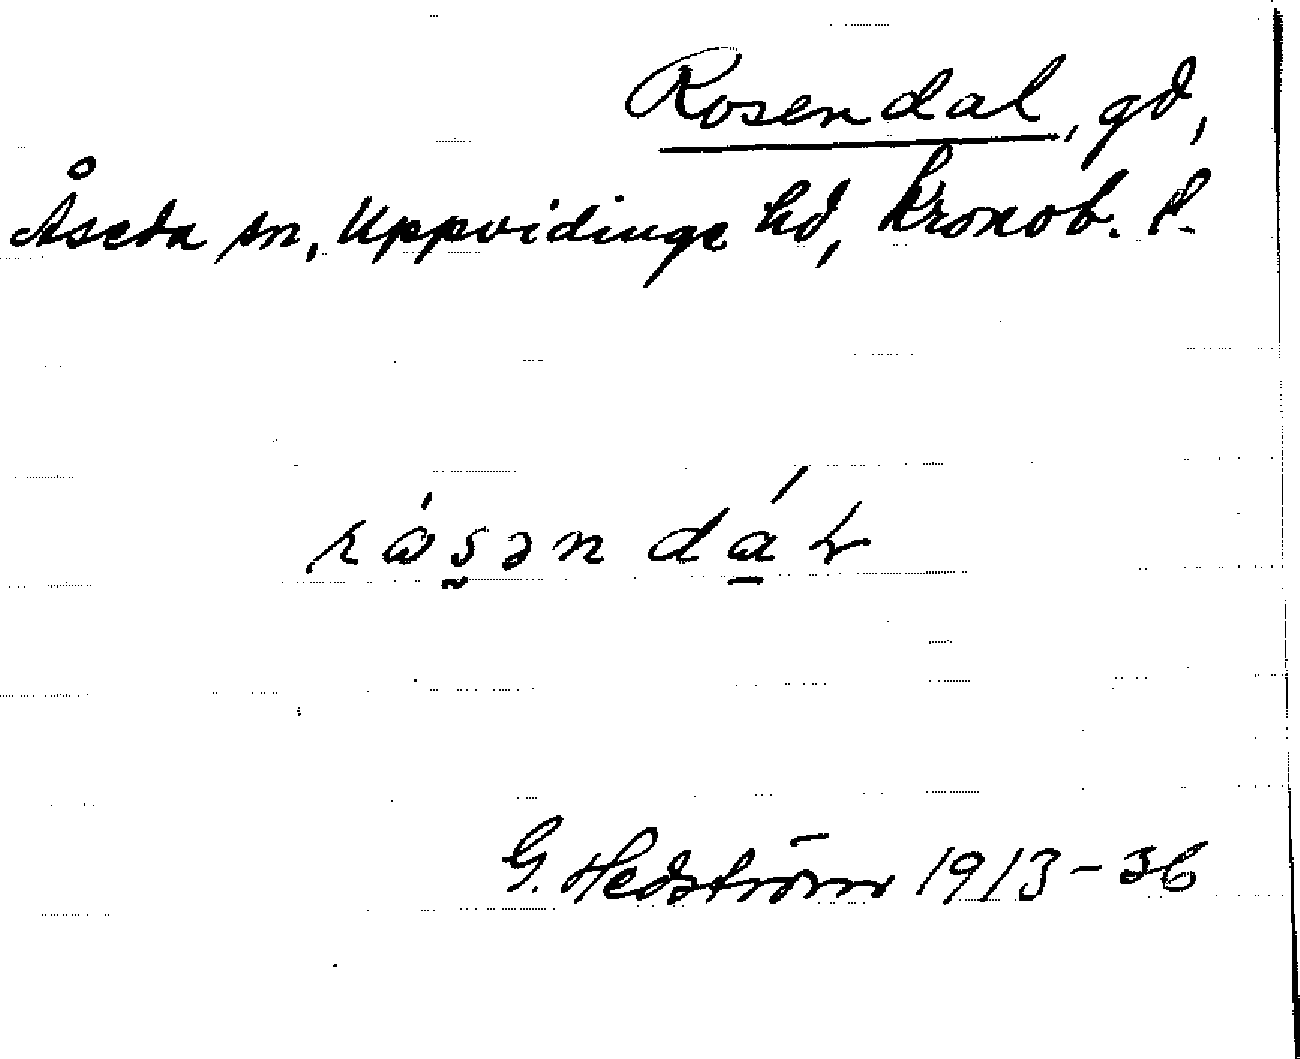 Rosendal, gd,
Åseda sn, Uppvidinge hd, Kronob. l.
G. Hedström 1913-36